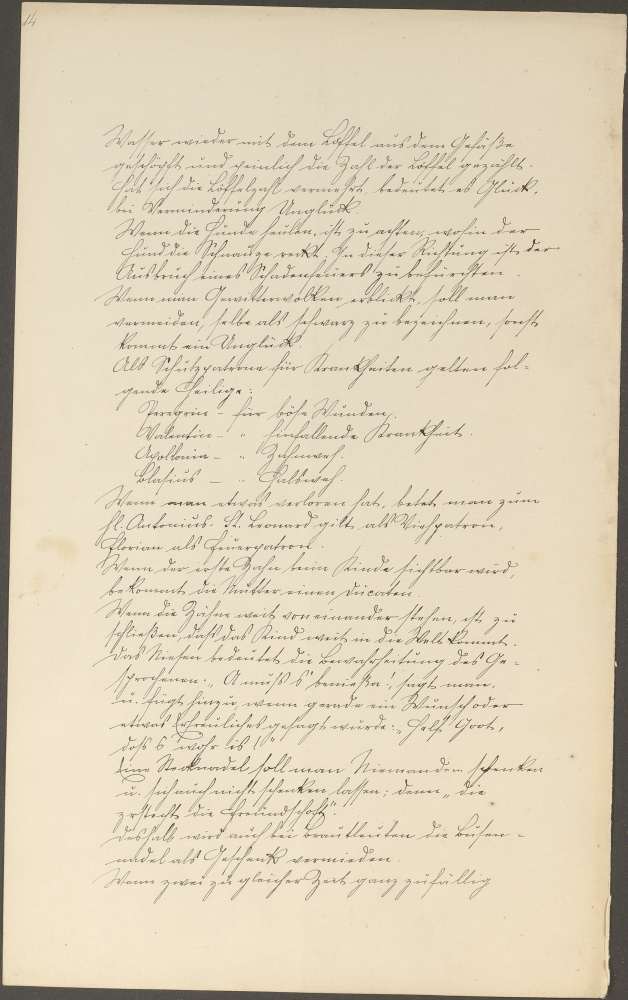 14
Wasser wieder mit dem Löffel aus dem Gefäße
geschöpft und peinlich die Zahl der Löffel gezählt.
Hat sich die Löffelzahl vermehrt, bedeutet es Glück,
bei Verminderung Unglück.
Wenn die Hunde heulen, ist zu achten, wohin der
Hund die Schnauze reckt. In dieser Richtung ist der
Ausbruch eines Schadenfeuers zu befürchten.
Wenn man Gewitterwolken erblickt, soll man
vermeiden, selbe als schwarz zu bezeichnen, sonst
kommt ein Unglück.
Als Schutzpatrone für Krankheiten gelten fol-
gende Heilige:
Peregrin – für böse Wunden,
Valentin – " hinfallende Krankheit.
Apollonia – " Zahnweh.
Blasius – " Halsweh.
Wenn man etwas verloren hat, betet man zum
hl. Antonius. St. Leonard gilt als Viehpatron,
Florian als Feuerpatron.
Wenn der erste Zahn beim Kinde sichtbar wird,
bekommt die Mutter einen Ducaten.
Wenn die Zähne weit von einander stehen, ist zu
schließen, daß das Kind weit in die Welt kommt.
Das Niesen bedeutet die Bewahrheitung des Ge-
sprochenen: „A muß s' benießa!, sagt man,
u. fügt hinzu, wenn gerade ein Wunsch oder
etwas Erfreuliches gesagt wurde: „Helf Goot,
doß s wohr is!"
Eine Stecknadel soll man Niemandem schenken
u. sich auch nicht schenken lassen; denn „die
zersticht die Freundschaft".
Deshalb wird auch bei Brautleuten die Busen-
nadel als Geschenk vermieden.
Wenn zwei zu gleicher Zeit ganz zufällig